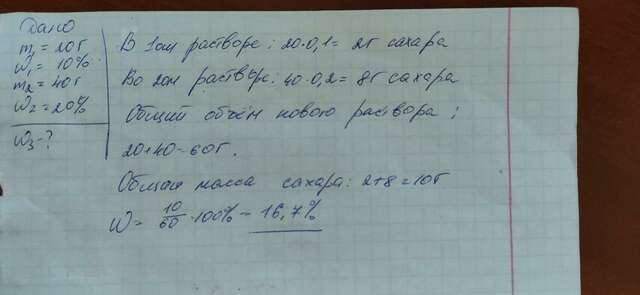 Дано
m₁ = 20г
ω₁ = 10%
m₂ = 40г
ω₂ = 20%
ω₃ - ?
В 1ом растворе: 20·0,1 = 2г сахара
Во 2ом растворе: 40·0,2 = 8г сахара
Общий объём нового раствора:
20+40=60г.
Общая масса сахара: 2+8=10г
ω = 10/60 · 100% = 16,7%